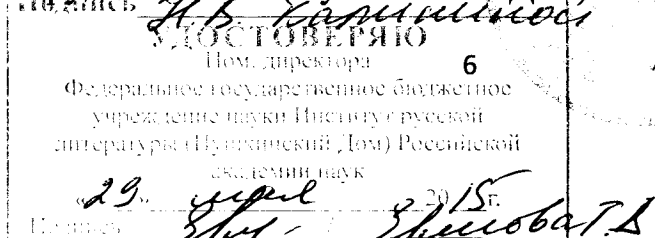 Подпись Н.В. Калининой
УДОСТОВЕРЯЮ
Пом. директора
6
Федеральное государственное бюджетное
учреждение науки Институт русской
литературы (Пушкинский Дом) Российской
академии наук
«29» мая 2015г.
Подпись